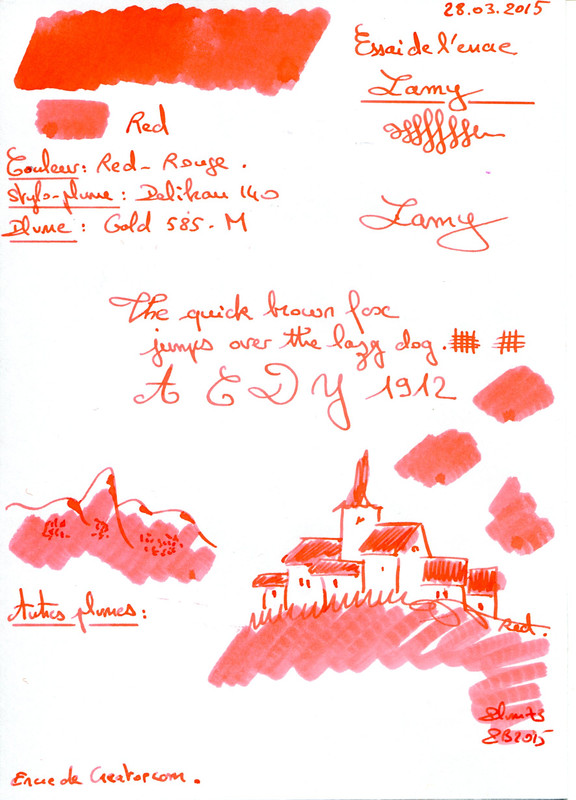 28.03.2015
Essai de l'encre
Lamy
Red
Couleur: Red - Rouge.
Stylo-plume: Pelikan 140
Plume: Gold 585 - M
Lamy
The quick brown fox
jumps over the lazy dog.
A E D Y 1912
Autres plumes:
Red.
SB2015
Encre de